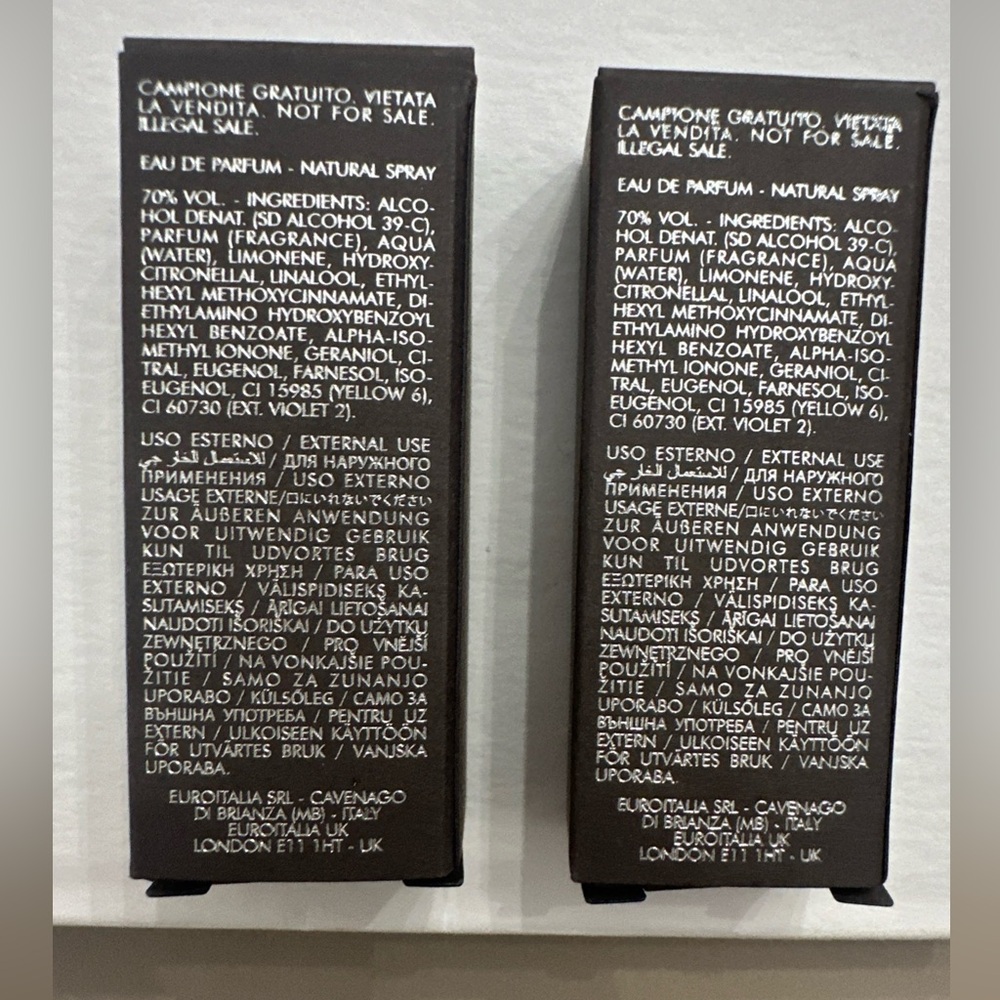 CAMPIONE GRATUITO. VIETATA
LA VENDITA. NOT FOR SALE.
ILLEGAL SALE.
EAU DE PARFUM - NATURAL SPRAY
70% VOL. - INGREDIENTS: ALCO-
HOL DENAT. (SD ALCOHOL 39-C),
PARFUM (FRAGRANCE), AQUA
(WATER), LIMONENE, HYDROXY-
CITRONELLAL, LINALOOL, ETHYL-
HEXYL METHOXYCINNAMATE, DI-
ETHYLAMINO HYDROXYBENZOYL
HEXYL BENZOATE, ALPHA-ISO-
METHYL IONONE, GERANIOL, CI-
TRAL, EUGENOL, FARNESOL, ISO-
EUGENOL, CI 15985 (YELLOW 6),
CI 60730 (EXT. VIOLET 2).
USO ESTERNO / EXTERNAL USE
للاستعمال الخارجي / ДЛЯ НАРУЖНОГО
ПРИМЕНЕНИЯ / USO EXTERNO
USAGE EXTERNE/口にいれないでください
ZUR ÄUßEREN ANWENDUNG
VOOR UITWENDIG GEBRUIK
KUN TIL UDVORTES BRUG
ΕΞΩΤΕΡΙΚΗ ΧΡΗΣΗ / PARA USO
EXTERNO / VÄLISPIDISEKS KA-
SUTAMISEKS / ĀRĪGAI LIETOŠANAI
NAUDOTI IŠORIŠKAI / DO UŻYTKU
ZEWNĘTRZNEGO / PRO VNĚJŠÍ
POUŽITÍ / NA VONKAJŠIE POU-
ŽITIE / SAMO ZA ZUNANJO
UPORABO / KÜLSŐLEG / САМО ЗА
ВЪНШНА УПОТРЕБА / PENTRU UZ
EXTERN / ULKOISEEN KÄYTTÖÖN
FÖR UTVÄRTES BRUK / VANJSKA
UPORABA.
EUROITALIA SRL - CAVENAGO
DI BRIANZA (MB) - ITALY
EUROITALIA UK
LONDON E11 1HT - UK
CAMPIONE GRATUITO. VIETATA
LA VENDITA. NOT FOR SALE.
ILLEGAL SALE.
EAU DE PARFUM - NATURAL SPRAY
70% VOL. - INGREDIENTS: ALCO-
HOL DENAT. (SD ALCOHOL 39-C),
PARFUM (FRAGRANCE), AQUA
(WATER), LIMONENE, HYDROXY-
CITRONELLAL, LINALOOL, ETHYL-
HEXYL METHOXYCINNAMATE, DI-
ETHYLAMINO HYDROXYBENZOYL
HEXYL BENZOATE, ALPHA-ISO-
METHYL IONONE, GERANIOL, CI-
TRAL, EUGENOL, FARNESOL, ISO-
EUGENOL, CI 15985 (YELLOW 6),
CI 60730 (EXT. VIOLET 2).
USO ESTERNO / EXTERNAL USE
للاستعمال الخارجي / ДЛЯ НАРУЖНОГО
ПРИМЕНЕНИЯ / USO EXTERNO
USAGE EXTERNE/口にいれないでください
ZUR ÄUßEREN ANWENDUNG
VOOR UITWENDIG GEBRUIK
KUN TIL UDVORTES BRUG
ΕΞΩΤΕΡΙΚΗ ΧΡΗΣΗ / PARA USO
EXTERNO / VÄLISPIDISEKS KA-
SUTAMISEKS / ĀRĪGAI LIETOŠANAI
NAUDOTI IŠORIŠKAI / DO UŻYTKU
ZEWNĘTRZNEGO / PRO VNĚJŠÍ
POUŽITÍ / NA VONKAJŠIE POU-
ŽITIE / SAMO ZA ZUNANJO
UPORABO / KÜLSŐLEG / САМО ЗА
ВЪНШНА УПОТРЕБА / PENTRU UZ
EXTERN / ULKOISEEN KÄYTTÖÖN
FÖR UTVÄRTES BRUK / VANJSKA
UPORABA.
EUROITALIA SRL - CAVENAGO
DI BRIANZA (MB) - ITALY
EUROITALIA UK
LONDON E11 1HT - UK